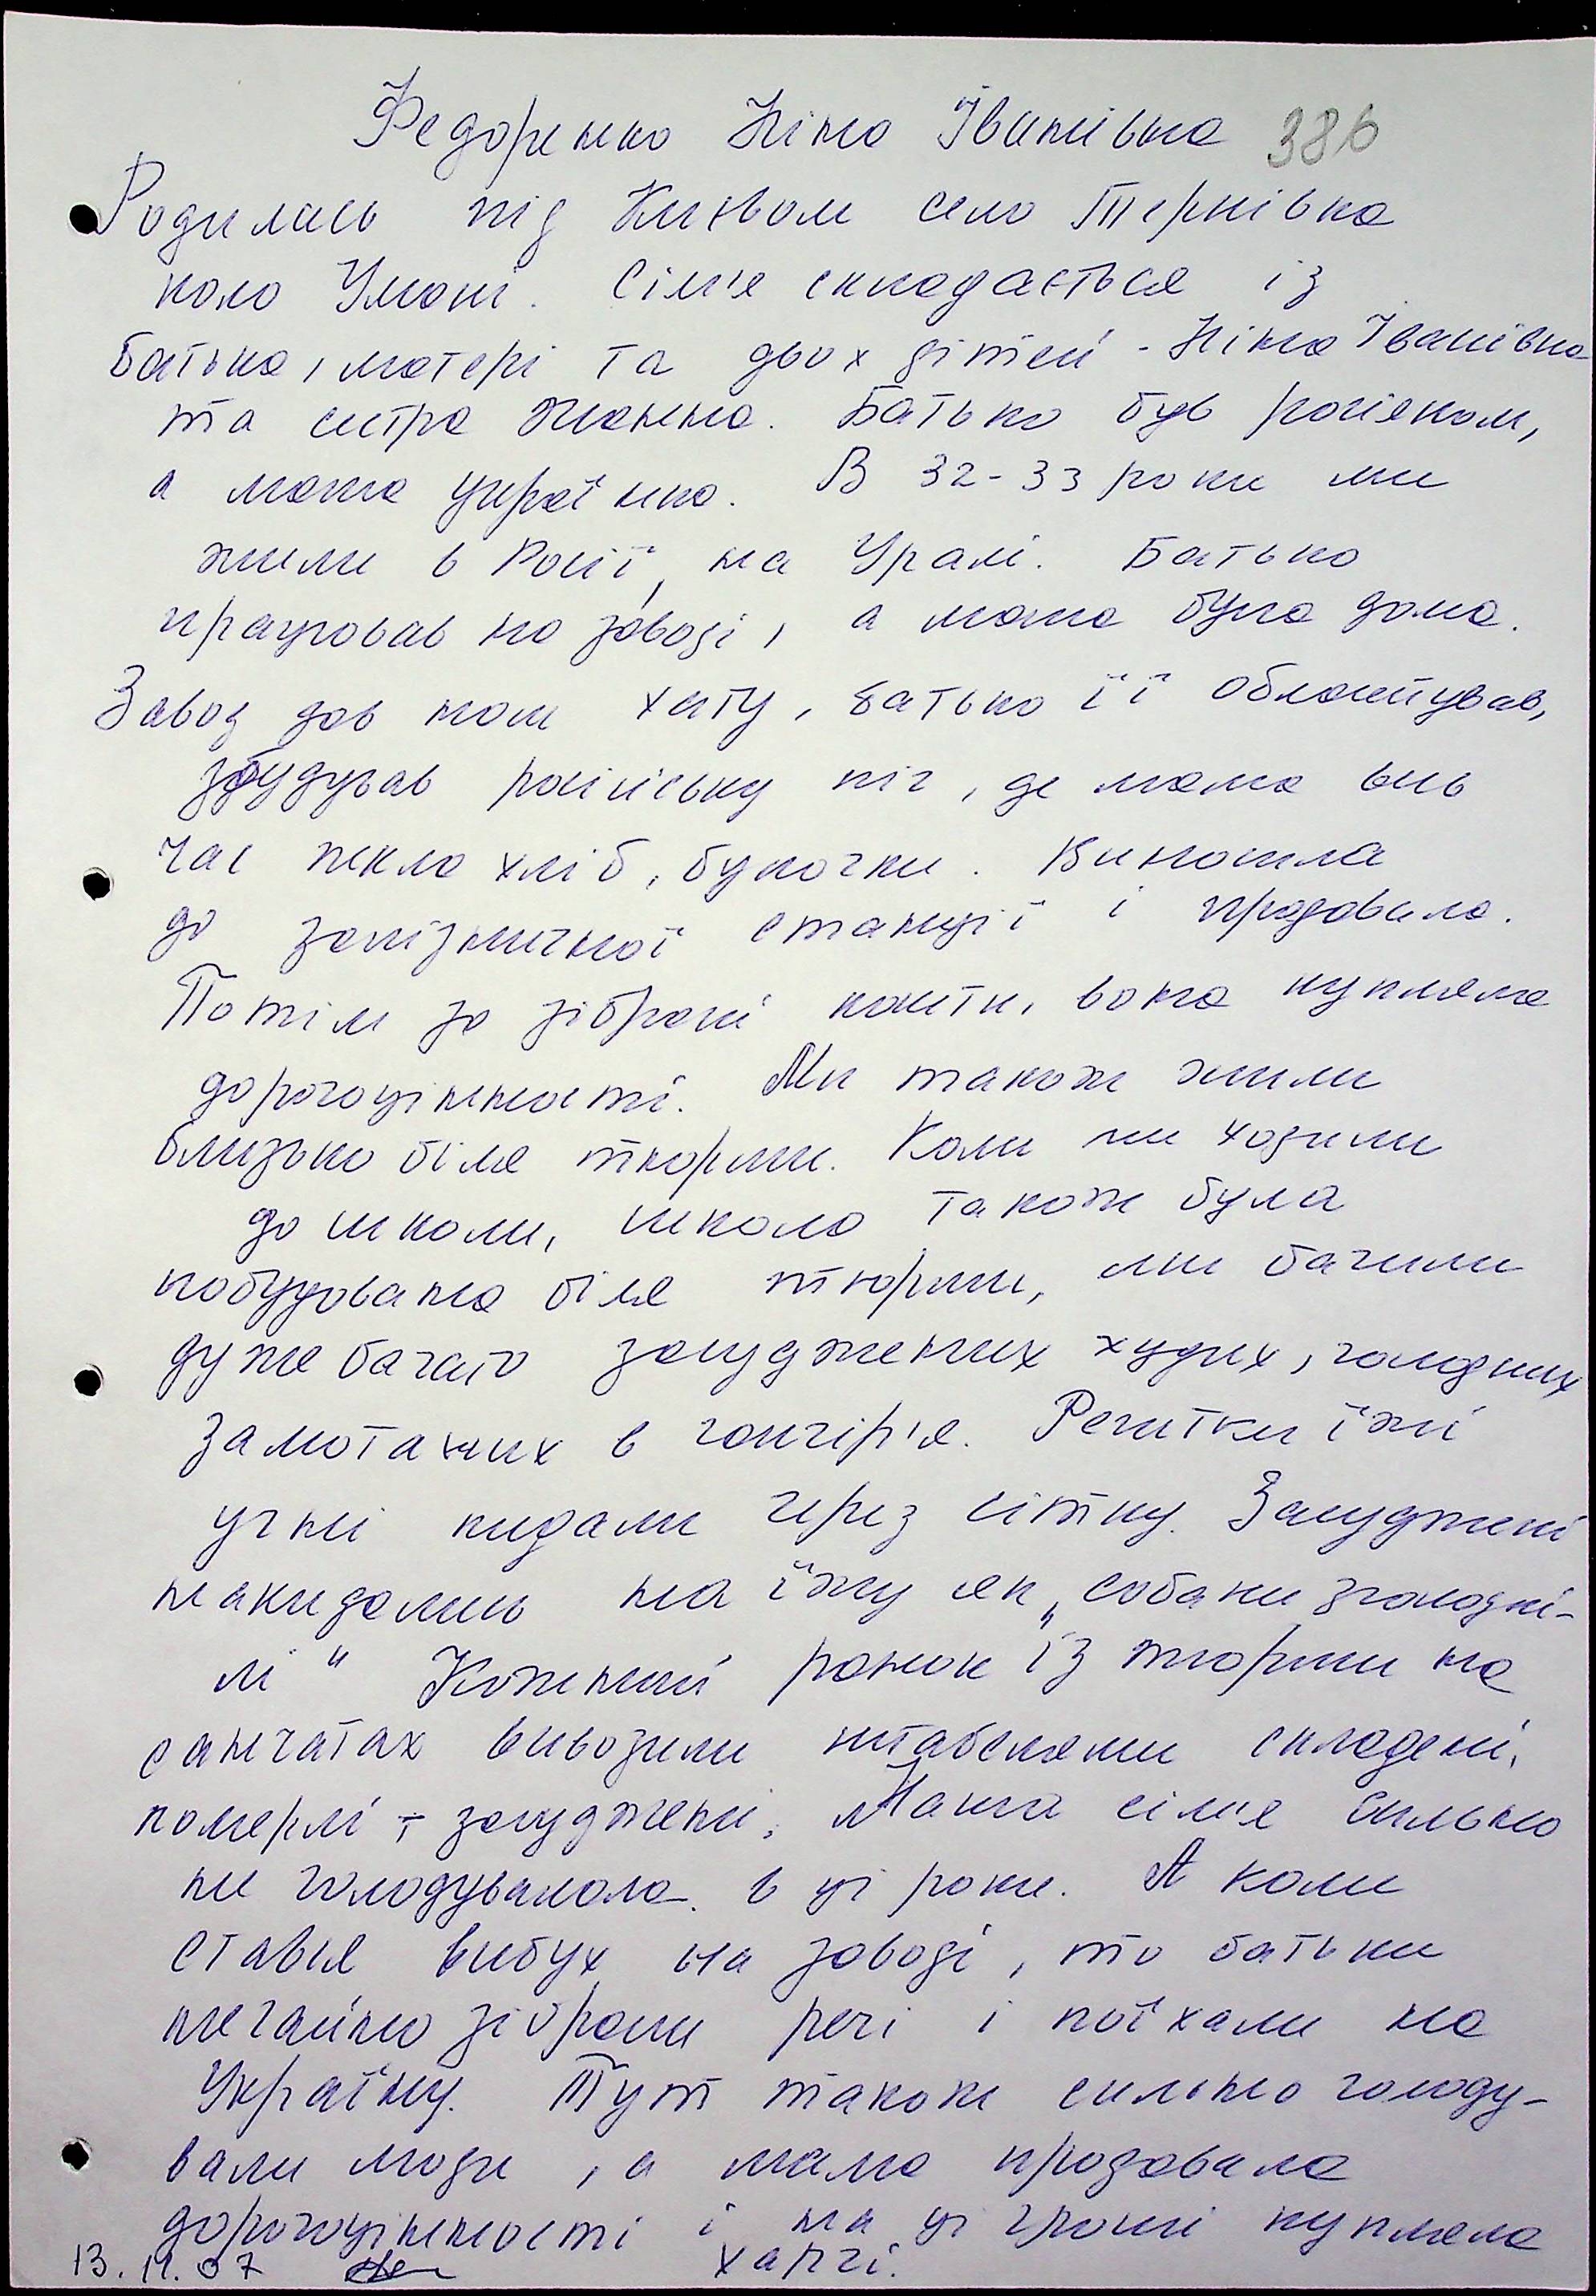 Федоренко Ніна Іванівна 386
Родилась під Києвом село Тернівка
коло Умані. Сім'я складається із
батька, матері та двох дітей - Ніна Іванівна
та сестра Жанна. Батько був росіяном,
а мама українка. В 32-33 роки ми
жили в Росії, на Уралі. Батько
працював на заводі, а мама була дома.
Завод дав нам хату, батько її облаштував,
збудував російську піч, де мама весь
час пекла хліб, булочки. Виносила
до залізничної станції і продавала.
Потім за зібрані кошти, вона купляла
дорогоцінності. Ми також жили
близько біля тюрми. Коли ми ходили
до школи, школа також була
побудована біля тюрми, ми бачили
дуже багато засуджених худих, голодних
замотаних в гончір'я. Решітки їжі
учні кидали через сітку. Засуджені
накидались на їжу як „собаки зголодні-
лі“ Кожний ранок із тюрми на
санчатах вивозили штабелями складені,
померлі - засуджені. Наша сім'я сильно
не голодувалала в ці роки. А коли
стався вибух на заводі, то батьки
негайно зібрали речі і поїхали на
Україну. Тут також сильно голоду-
вали люди, а мама продавала
дорогоцінності і на ці гроші купляла
харчі.
13.11.07